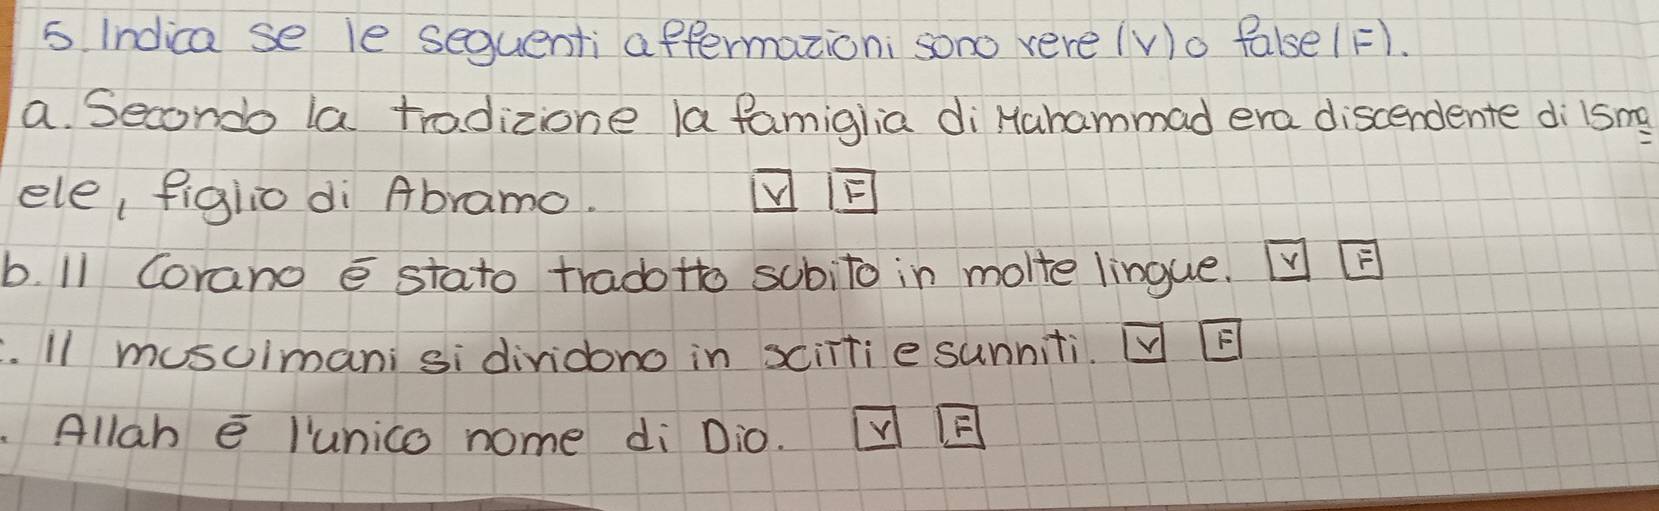 5. Indica se le seguenti affermazioni sono vere (V) o false (F).
a. Secondo la tradizione la famiglia di Muhammad era discendente di Isma
ele, figlio di Abramo. V F
b. Il Corano ē stato tradotto subito in molte lingue. V F
. Il musulmani si dividono in sciiti e sunniti. V F
. Allah ē l'unico nome di Dio. V F